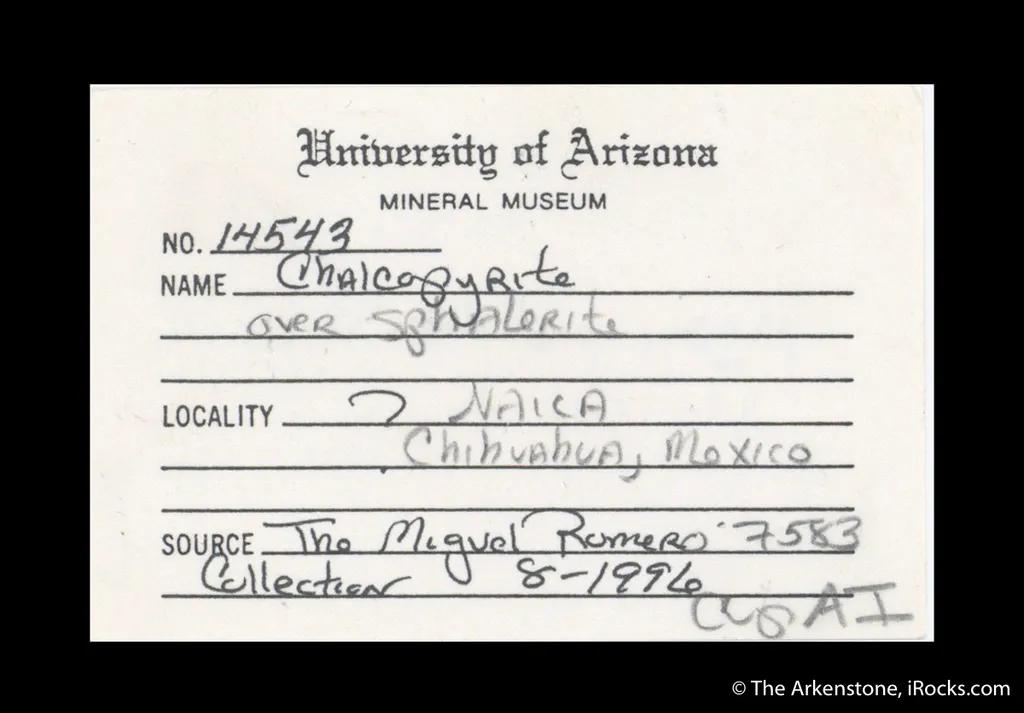 University of Arizona
MINERAL MUSEUM
NO. 14543
NAME Chalcopyrite
over Sphalerite
LOCALITY ? Naica
Chihuahua, Mexico
SOURCE The Miguel Romero 7583
Collection 8-1996
AI
© The Arkenstone, iRocks.com